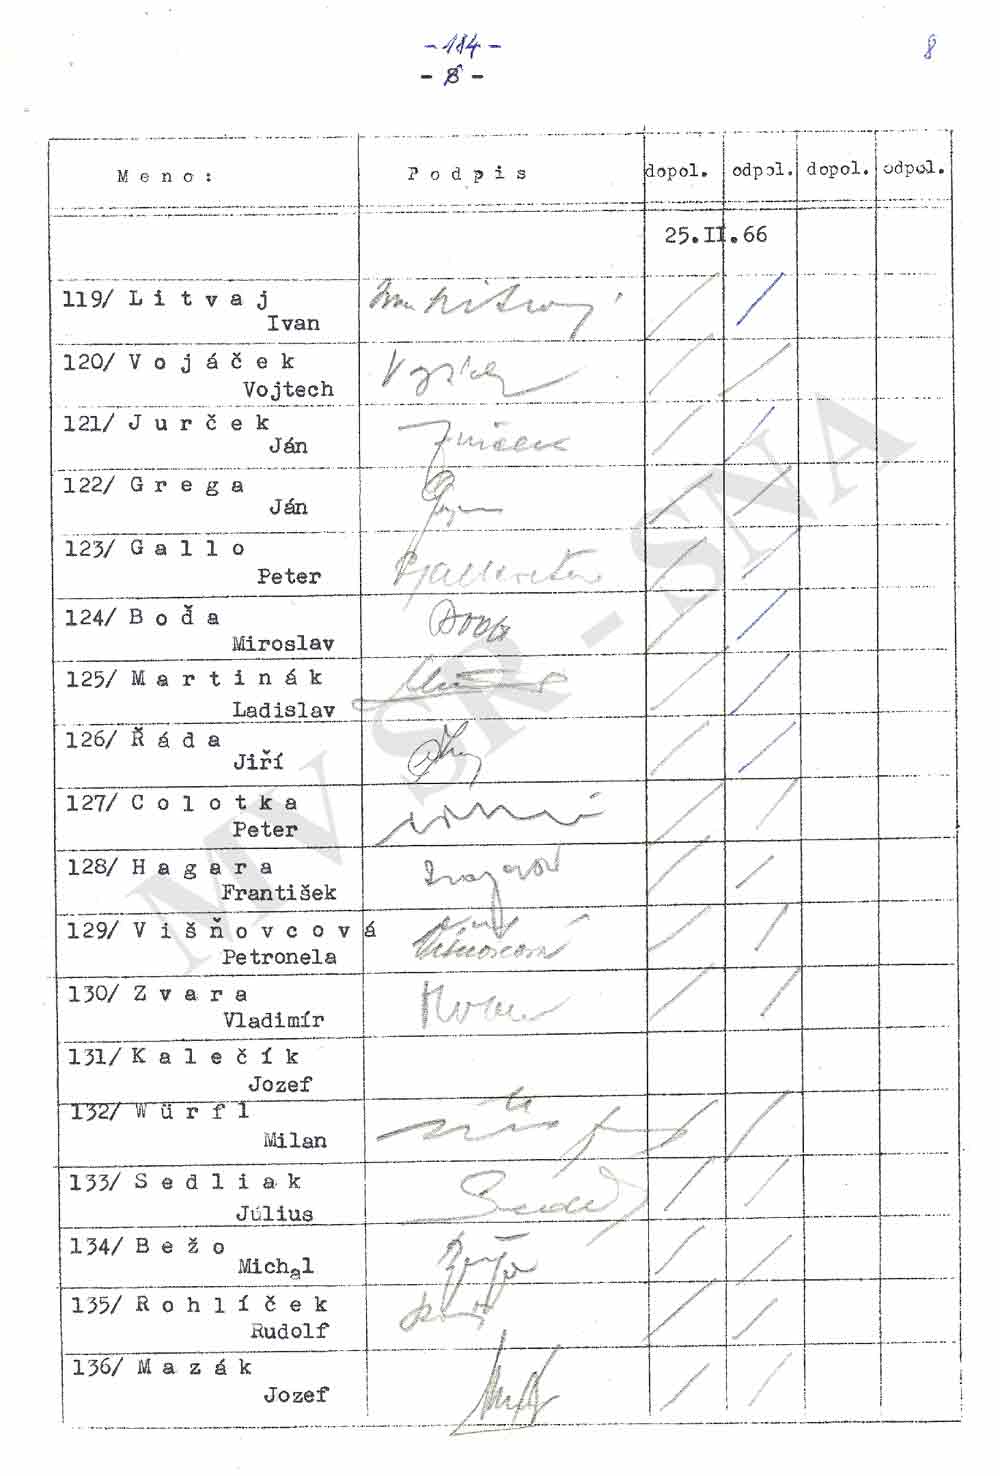 - 184 -
8
- 8 -
M e n o :
P o d p i s
dopol.
odpol.
dopol.
odpol.
25.II.66
119/ L i t v a j
Ivan
120/ V o j á č e k
Vojtech
121/ J u r č e k
Ján
Jurček
122/ G r e g a
Ján
123/ G a l l o
Peter
124/ B o ď a
Miroslav
125/ M a r t i n á k
Ladislav
126/ Ř á d a
Jiří
127/ C o l o t k a
Peter
128/ H a g a r a
František
129/ V i š ň o v c o v á
Petronela
130/ Z v a r a
Vladimír
131/ K a l e č í k
Jozef
132/ W ü r f l
Milan
133/ S e d l i a k
Július
134/ B e ž o
Michal
135/ R o h l í č e k
Rudolf
136/ M a z á k
Jozef
MV SR - SNA